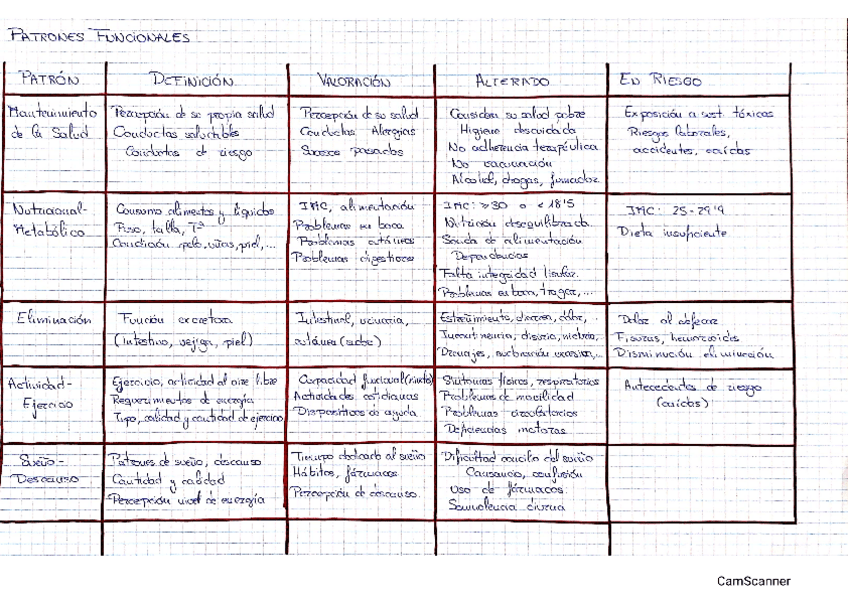 PATRONES FUNCIONALES
PATRÓN DEFINICIÓN VALORACIÓN ALTERADO EN RIESGO
Mantenimiento de la Salud
Percepción de su propia salud
Conductas saludables
Conductas de riesgo
Percepción de su salud
Conductas Alergias
Sucesos pasados
Considera su salud pobre
Higiene descuidada
No adherencia terapéutica
No vacunación
Alcohol, drogas, fumador
Exposición a sust. tóxicas
Riesgos laborales,
accidentes, caídas
Nutricional-
Metabólico
Consumo alimentos y líquidos
Peso, talla, Tª
Condición pelo, uñas, piel,...
IMC, alimentación
Problemas en boca
Problemas cutáneos
Problemas digestivos
IMC: ≥30 o < 18'5
Nutrición desequilibrada
Sonda de alimentación
Dependencias
Falta integridad tisular.
Problemas en boca, tragar,...
IMC: 25-29'9
Dieta insuficiente
Eliminación
Función excretora
(intestino, vejiga, piel)
Intestinal, urinaria,
cutánea (sudor)
Estreñimiento, diarrea, dolor,..
Incontinencia, disuria,
Drenajes, sudoración excesiva,..
Dolor al defecar
Fisuras, hemorroides
Disminución eliminación
Actividad-
Ejercicio
Ejercicio, actividad al aire libre
Requerimientos de energía
Tipo, calidad y cantidad de ejercicio
Capacidad funcional
Actividades cotidianas
Dispositivos de ayuda
Síntomas físicos, respiratorios
Problemas de movilidad
Problemas circulatorios
Deficiencias motoras
Antecedentes de riesgo
(caídas)
Sueño-
Descanso
Patrones de sueño, descanso
Cantidad y calidad
Percepción nivel de energía
Tiempo dedicado al sueño
Hábitos, fármacos
Percepción de descanso.
Dificultad conciliar del sueño
Cansancio, confusión
Uso de fármacos
Somnolencia diurna
CamScanner